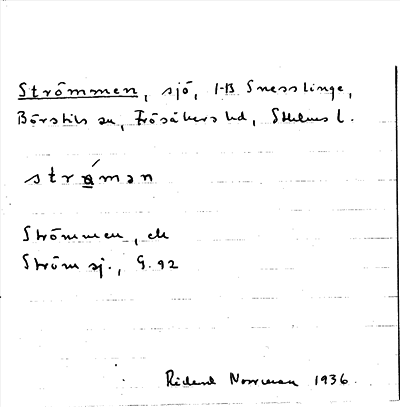 Strömmen, sjö, I-B Snesslinge,
Börstils sn, Frösåkers hd, Sthlms l.
strǿmən
Strömmen, ek
Ström sj., G. 92
Rickard Norrman 1936.